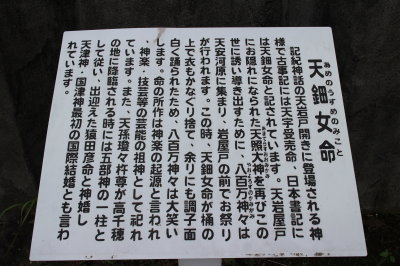 天鈿女命
あめのうずめのみこと
記紀神話の天岩戸開きに登場される神
様で古事記には天宇受売命、日本書記に
は天鈿女命と記されています。天岩屋戸
にお隠れになられた天照大神を再びこの
世に誘い導き出すために、八百万神々は
天安河原に集まり、岩屋戸の前でお祭り
が行われます。この時、天鈿女命が桶の
上で衣もかなぐり捨て、余りにも調子面
白く踊られたため、八百万神々は大笑い
します。命の所作は神楽の起源と言われ
、神楽・技芸等の芸能の祖神として祀れ
ています。また、天孫瓊々杵尊が高千穂
の地に降臨される時には五部神の一柱と
して従い、出迎えた猿田彦命と神婚し
天津神・国津神最初の国際結婚とも言わ
れています。